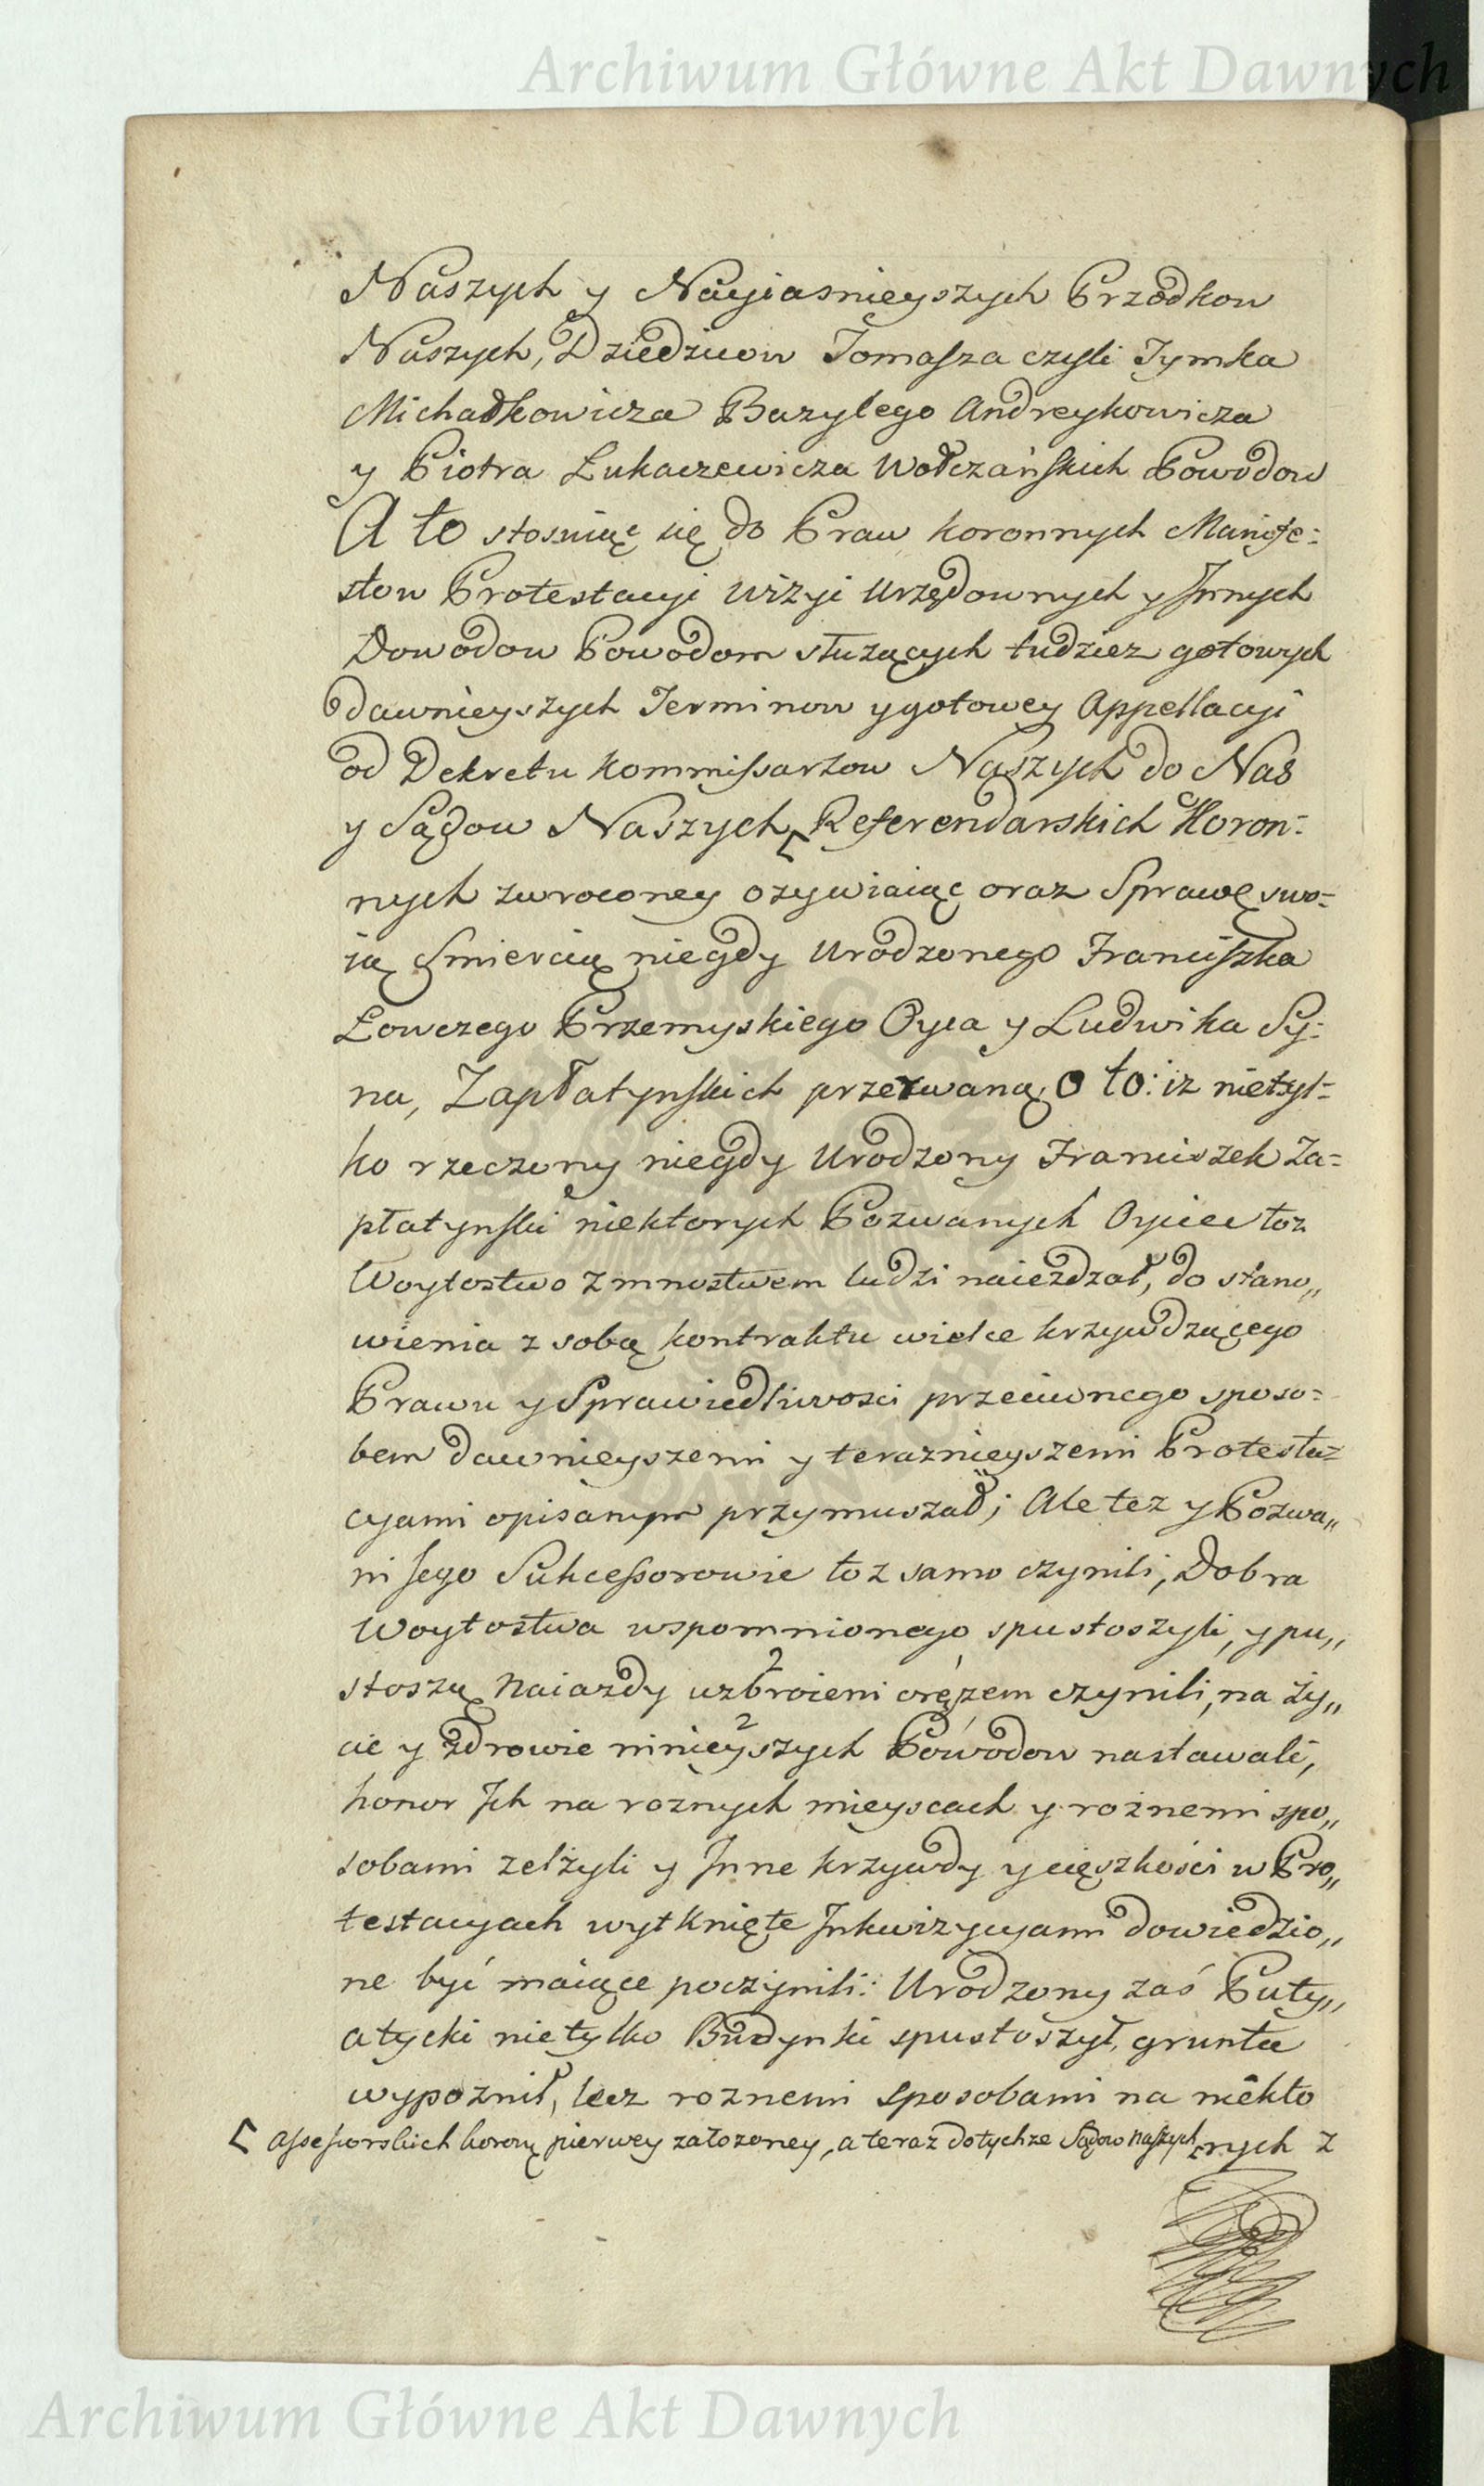 Archiwum Główne Akt Dawnych
Naszych y Nayiasnieyszych Przodkow
Naszych, Dziedzicow Tomasza czyli Tymka
Michałkowicza Bazylego Andreykowicza
y Piotra Łukaczewicza Wołczańskich Powodow
A to stosuiąc się do Praw koronnych Manife:
stow Protestacyi Wizyi Urzędownych y Jnnych
Dowodow Powodom służących tudziez gotowych
dawnieyszych Terminow y gotowey Appellacyi
od Dekretu Kommissarzow Naszych do Nas
y Sądow Naszych ⌈ Referendarskich Koron:
nych zwroconey ozywiaiąc oraz Sprawę swo:
ią Smiercią niegdy Urodzonego Franciszka
Łowczego Przemyskiego Oyca y Ludwika Sy:
na, Zapłatynskich przerwaną, O to: iz nietyl:
ko rzeczony niegdy Urodzony Franciszek Za:
płatynski niektorych Pozwanych Oyciec toz
Woytostwo z mnostwem ludzi naiezdzał, do stano„
wienia z sobą kontraktu wielce krzywdzącego
Prawu y Sprawiedliwosci przeciwnego sposo:
bem dawnieyszemi y teraznieyszemi Protesta:
cyami opisanym przymuszał; Ale tez y Pozwa„
ni Jego Sukcessorowie toz samo czynili, Dobra
Woytostwa wspomnionego spustoszyli, y pu„
stoszą Naiazdy uzbroieni orężem czynili, na ży„
cie y zdrowie ninieyszych Powodow nastawali,
honor Jch na roznych mieyscach y rożnemi spo„
sobami zelżyli y Jnne krzywdy y cięszkości w Pro„
testacyach wytknięte Jnkwizycyami dowiedzio„
ne być maiące poczynili: Urodzony zaś Puty„
atycki nietylko Budynki spustoszył, grunta
wypoznił, lecz roznemi sposobami na niekto
⌈ Assessorskich korony pierwey założoney, a teraz dotychze Sądow Naszych
rych z
Archiwum Główne Akt Dawnych